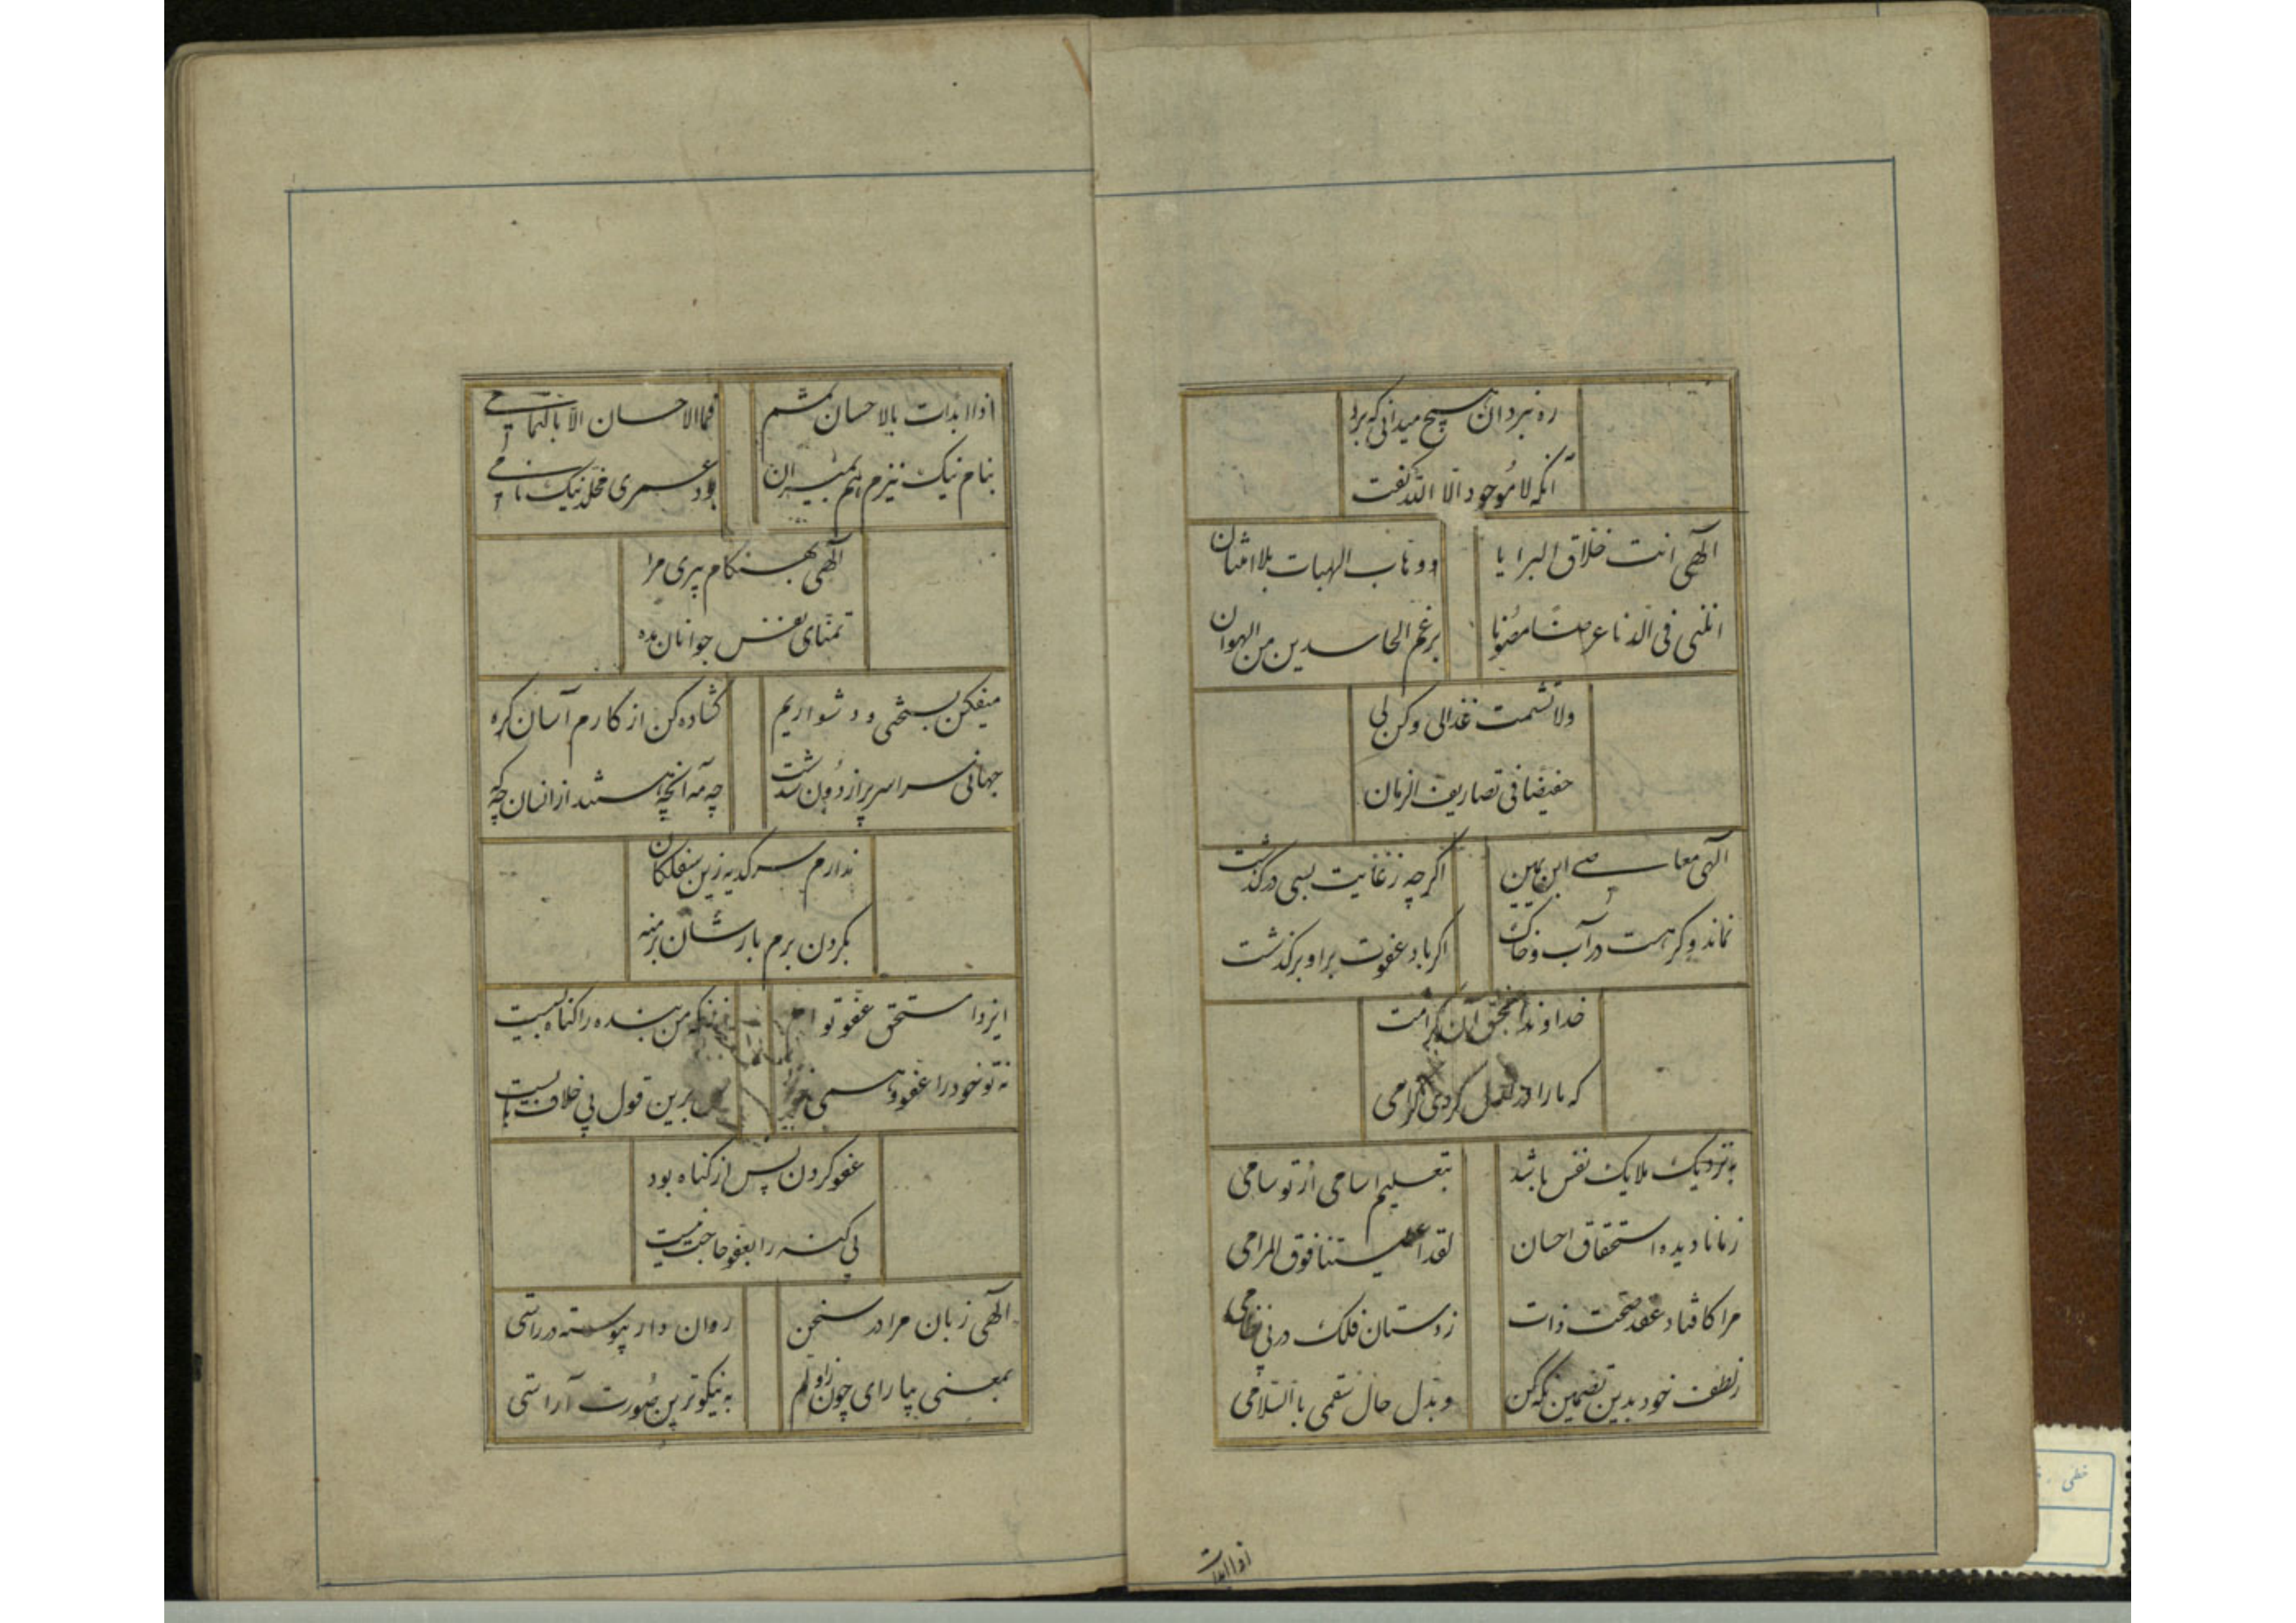 ره نبرد ان هیچ میدانی که برد
آنکه لا موجود الا الله گفت
الهی انت خلاق البرایا ووهاب الهبات بلا امتنان
انلنی فی الدنا عرضا مصونا برغم الحاسدین من الهوان
ولا تشمت عذالی وکن لی
حفیضا فی تصاریف الزمان
الهی معاصی ابن یمین اکر چه ز غایت بسی درکذشت
نماند وکر هست در آب وخاک اکر باد عفوت براو برکذشت
خداوندا بحق آن کرامت
که ما را در کردی کرامی
به نزدیک ملایک نفس ما شد بتعلیم اسامی از تو سامی
زمانا دیده استحقاق احسان لقد اعطیتنا فوق المرامی
مرا کافتاد عقد صحت ذات ز دستان فلک در بی
ز لطف خود بدین تضمین که کن وبدل حال سقمی باالسلامی
اذا ابدات
اذا ابدات بالاحسان تمم فما الاحسان الا بالتمامی
بنام نیک نیزم هم بمیران بود عمری مخلد نیک نامی
الهی بهنکام پیری مرا
تمنای نفس جوانان مده
میفکن بسختی ودشواریم کشاده کن از کارم آسان کره
جهانی سراسر پر از دون شدست چه مه آنچه هستند از انسان چه که
ندارم سر کدیه زین سفلکان
بکردن برم بارشان بر منه
ایزدا مستحق عفو توام من بنده را کناه بسیست
نه تو خود را عفو همی برین قول بی خلاف بایست
عفو کردن پس از کناه بود
بی کنه را بعفو حاجت نیست
الهی زبان مرا در سخن روان دار پیوسته در راستی
بمعنی بیارای چون زاولم به نیکوترین صورت آراستی
خطی